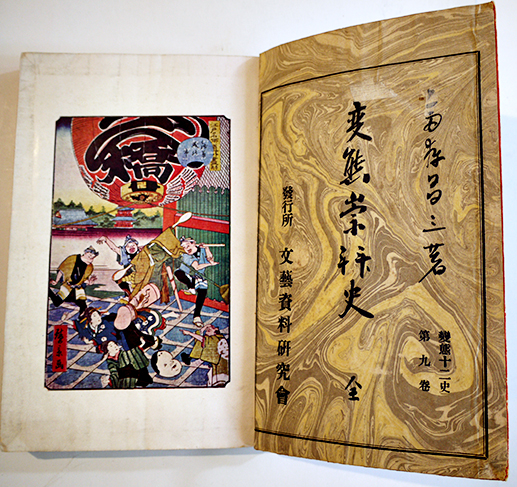 斎藤昌三著
變態十二史
第九卷
変態崇拝史 全
發行所 文藝資料研究會
橋